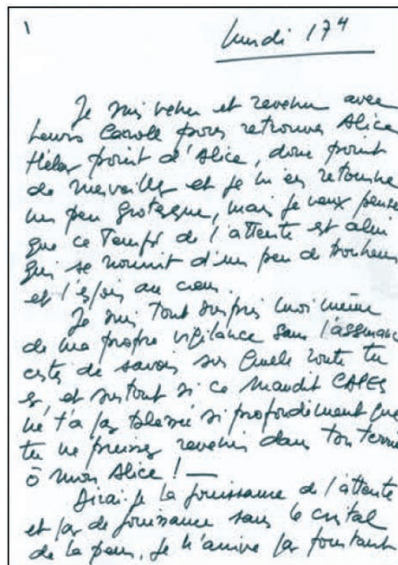 1
lundi 17 4
Je suis venu et revenu avec
Lewis Caroll pour retrouver Alice
Hélas point d'Alice, donc point
de merveilles et je m'en retourne
un peu grotesque, mais je veux penser
que ce temps de l'attente est celui
qui se nourrit d'un peu de bonheur
et l'espoir au cœur.
Je suis tout surpris moi même
de ma propre vigilance sans l'assurance
certes de savoir sur quelle route tu
es et surtout si ce maudit CAPES
ne t'a pas blessé si profondément que
tu ne puisses revenir dans ton terrier
ô mon Alice ! —
Dirai-je la jouissance de l'attente
et pas de jouissance sans le cristal
de la peur, je n'arrive pas pourtant